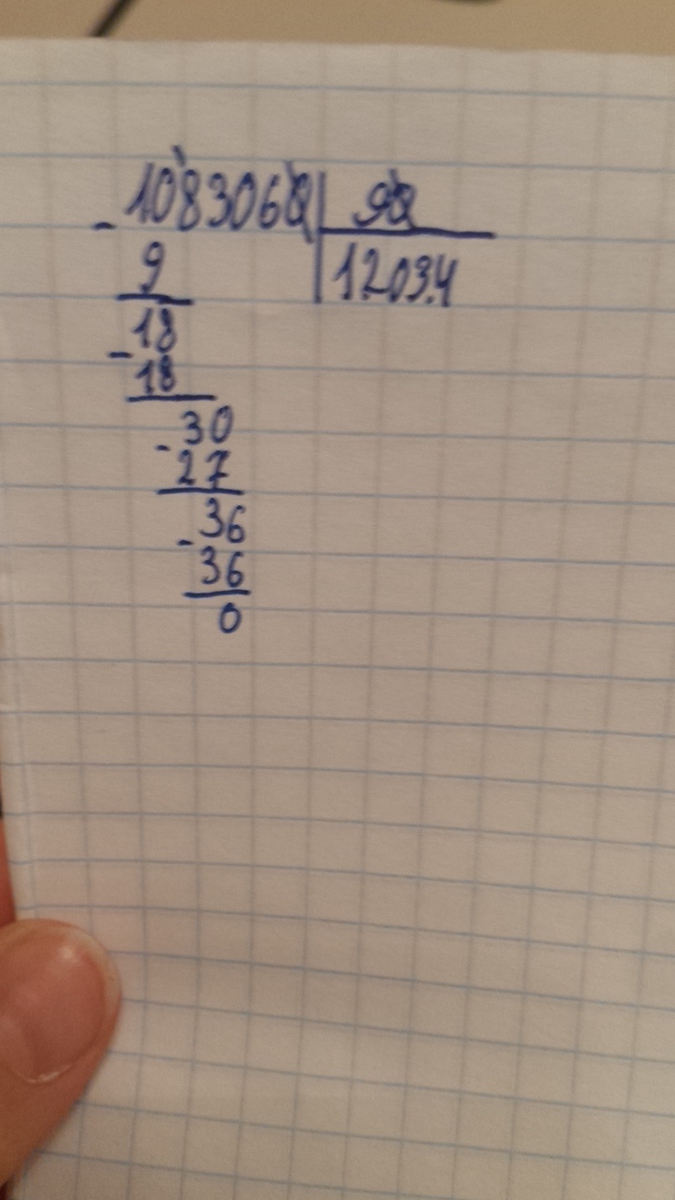 - 1083060 | 90
9 | 12034
18
- 18
30
- 27
36
- 36
0